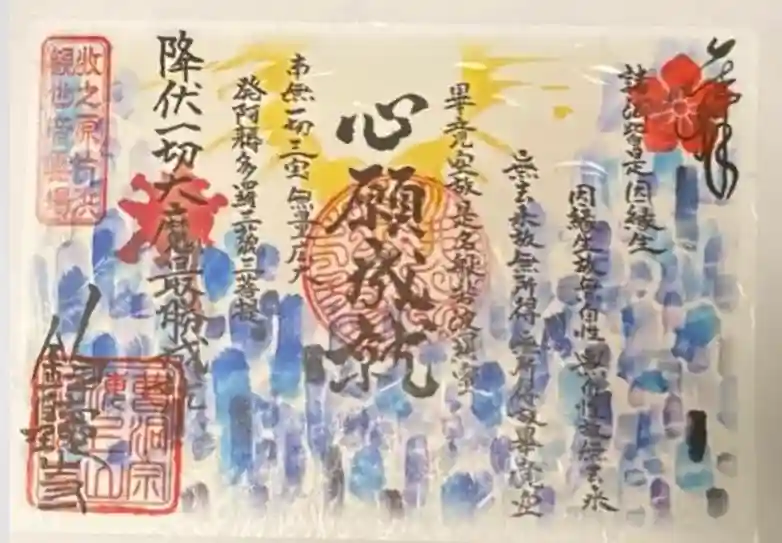 奉拝
諸法皆是因縁生
因縁生故無自性 無自性故無去来
無去来故無所得 無所得故畢竟空
畢竟空故是名般若波羅蜜
心願成就
南無一切三宝 無量広大
発阿耨多羅三藐三菩提
降伏一切大魔最勝成就
牧之原片浜
観世音霊場
曹洞宗